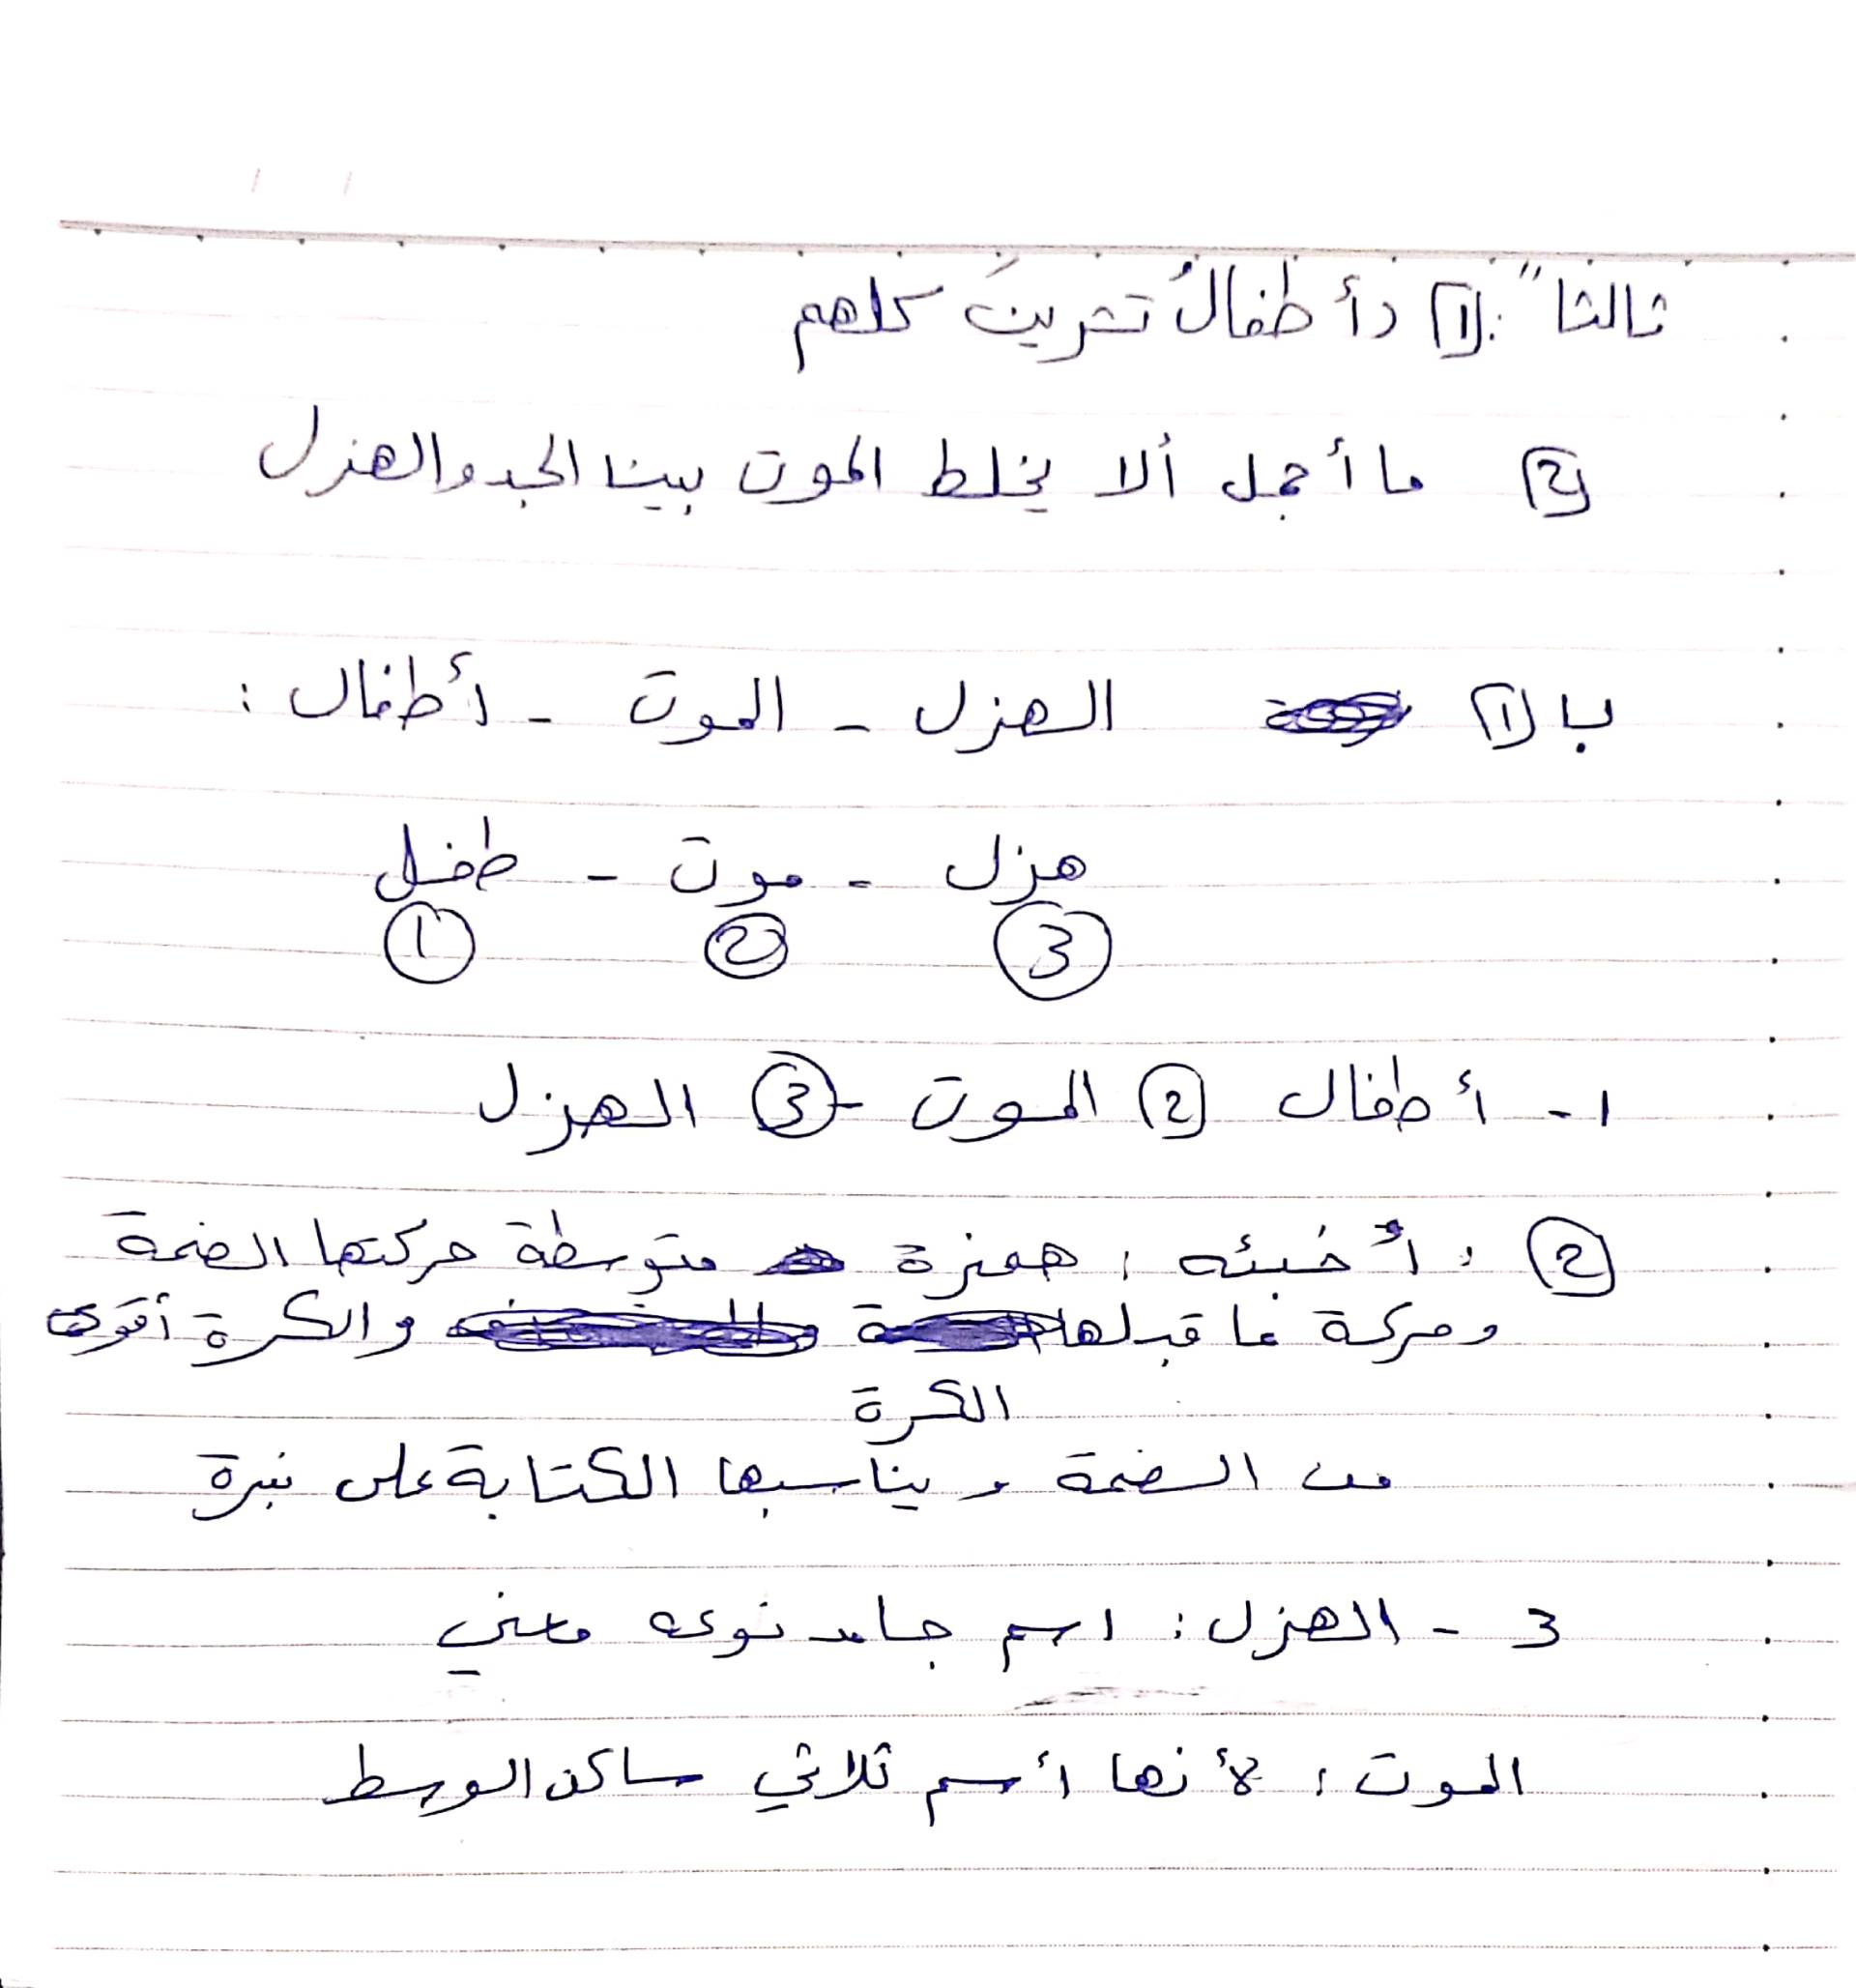 ثالثاً: (1) أطفالُ تشرينَ كلهم
(2) ما أجمل ألا يخلط الموت بين الجد والهزل
ب (1) الهزل - الموت - أطفال:
هزل - موت - طفل
(3) (2) (1)
1- أطفال (2) الموت - (3) الهزل
(2): أُخبئه: همزة متوسطة حركتها الضمة
وحركة ما قبلها والكسرة أقوى
الكسرة
من الضمة ويناسبها الكتابة على نبرة
3 - الهزل: اسم جامد نوعه معنى
الموت: لأنها أسم ثلاثي ساكن الوسط